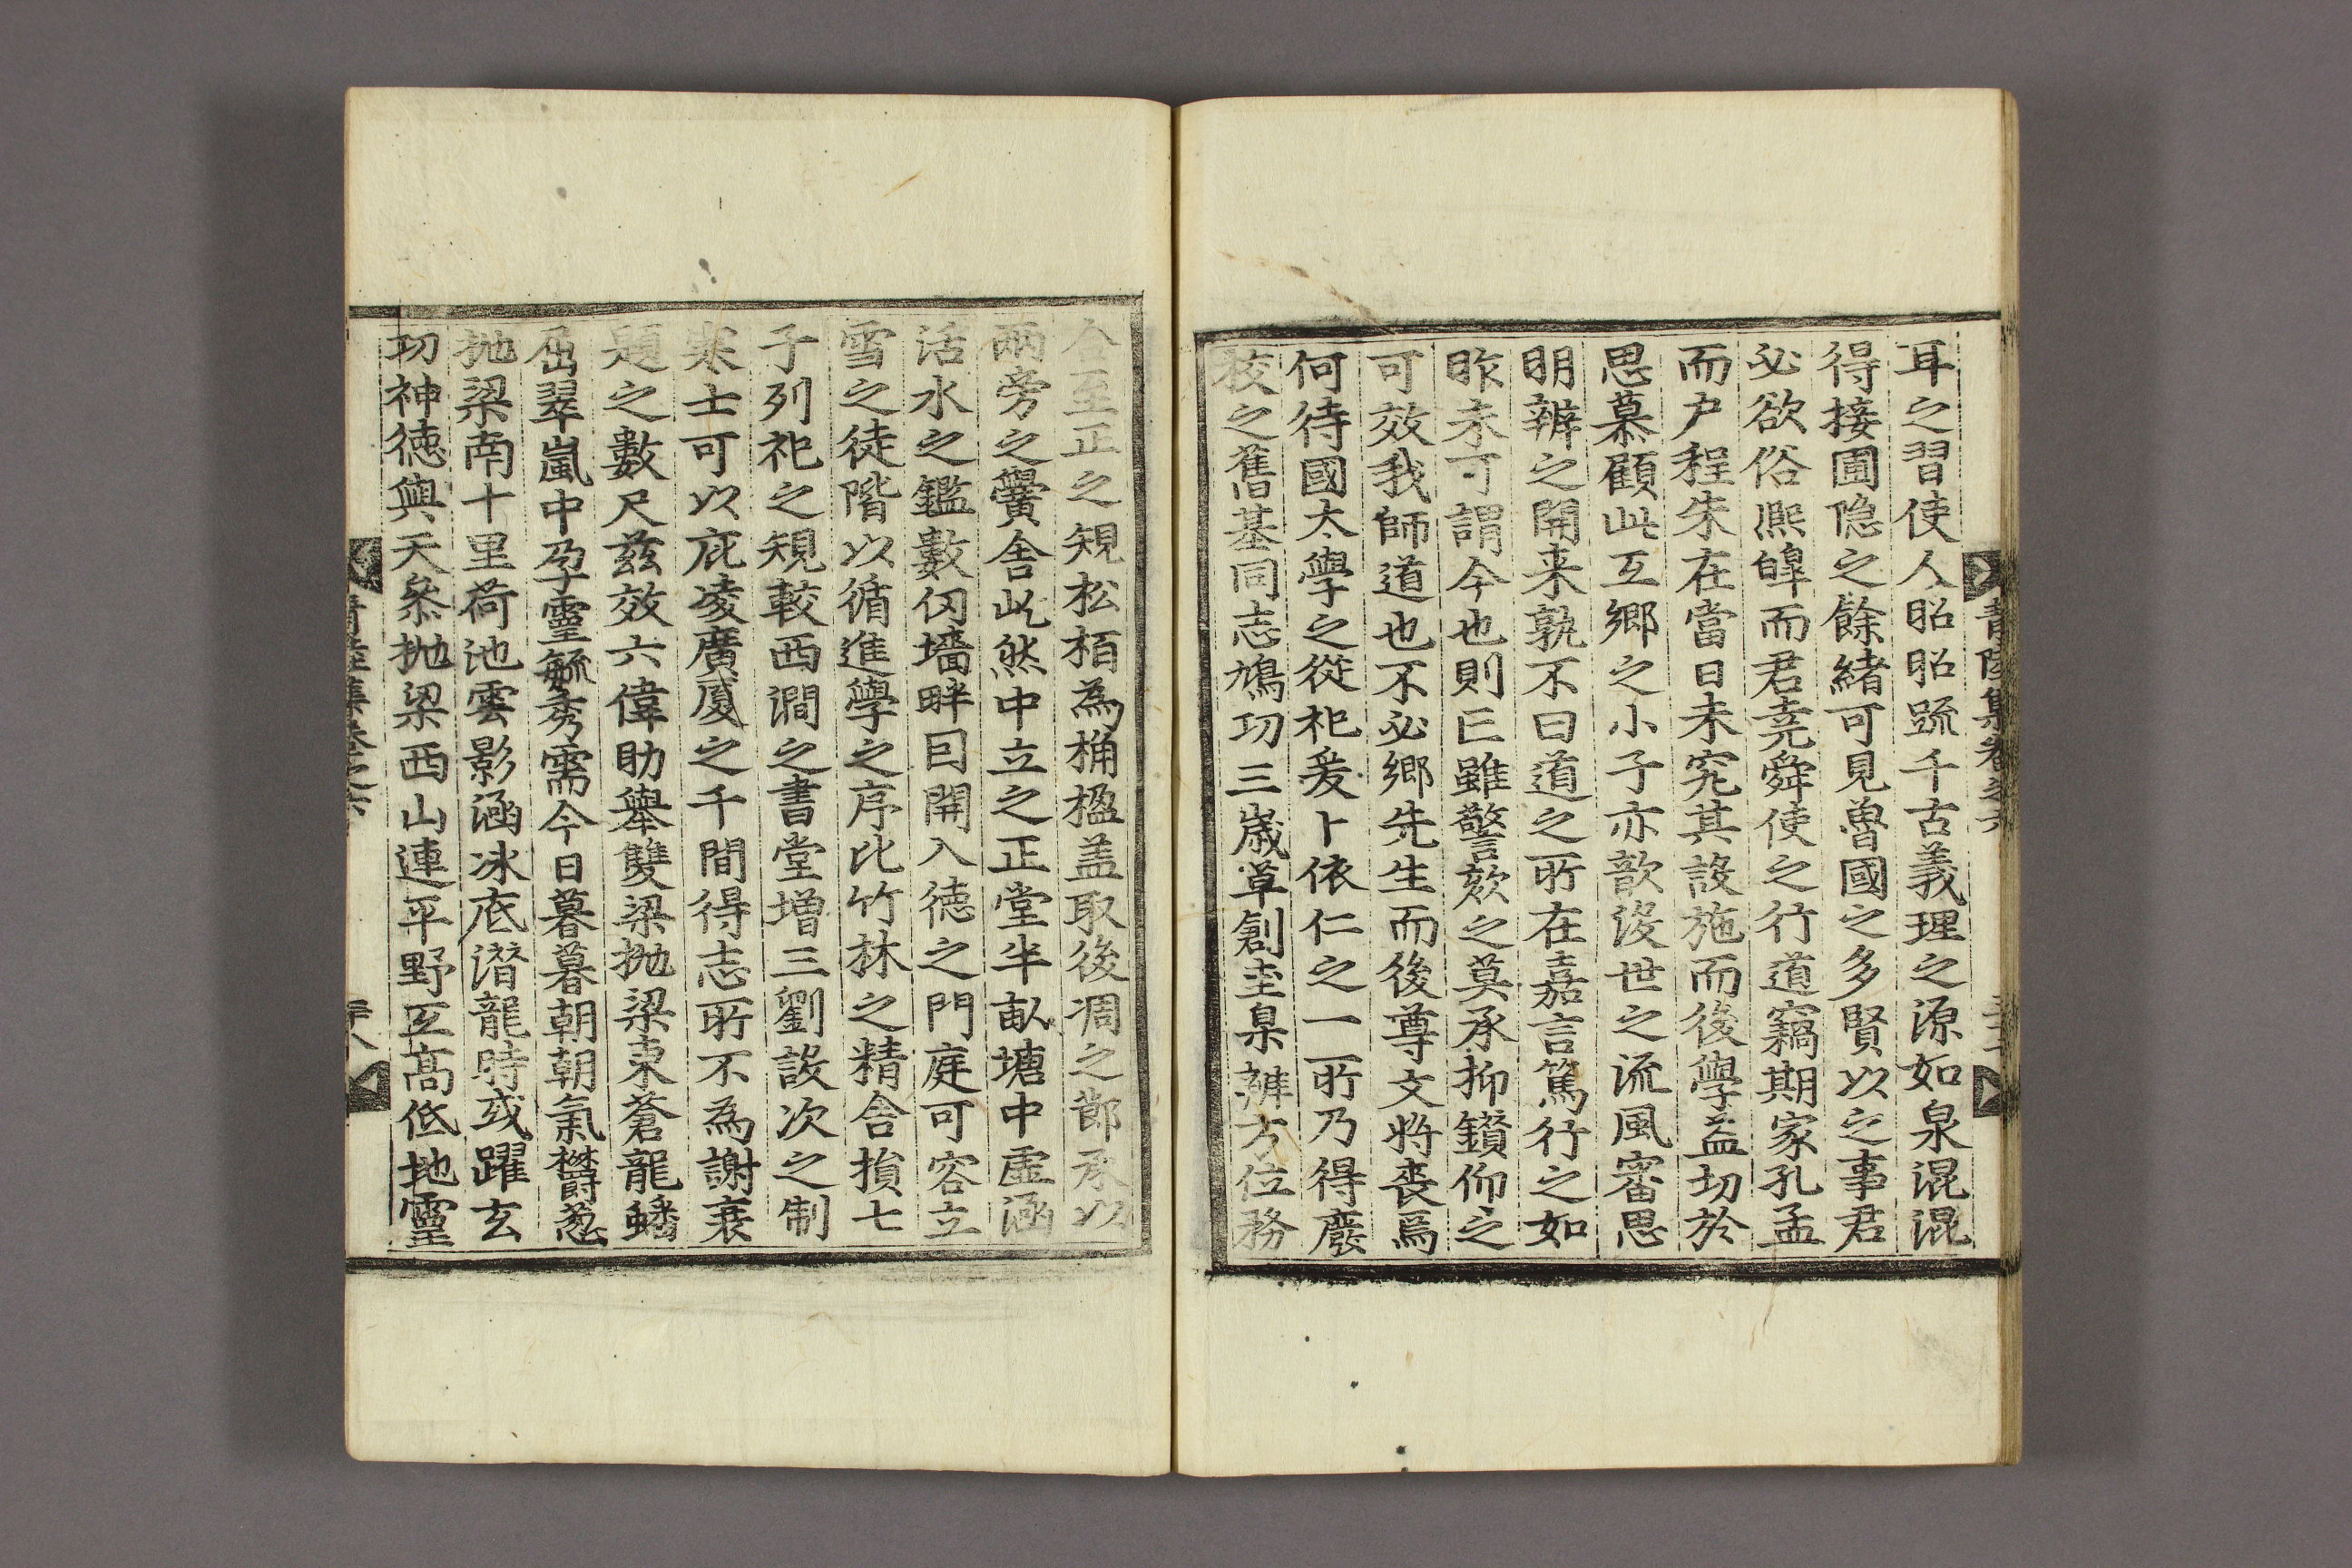 耳之習使人昭昭䟽千古義理之源如泉混混
得接圃隐之餘緖可見曾國之多賢以之事君
必欲俗熙皞而君堯舜使之行道竊期家孔孟
而户程朱在當日未究其設施而後學益切於
思慕顧此互鄕之小子亦歆沒世之流風審思
明辨之開来孰不曰道之所在嘉言篤行之如
昨未可謂今也則亡雖警欬之莫承抑鑚仰之
可效我師道也不必鄕先生而後尊文將喪焉
何待國太學之從祀爰卜依仁之一所乃得廢
校之舊基同志鳩功三歲草創圭臬辨方位務
青陸集卷之六
人至正之規松栢為桷楹盖取後凋之節承以
兩旁之黌舎屹然中立之正堂半畝塘中虛涵
活水之鑑數仭墻畔囙開入德之門庭可容立
雪之徒階以循進學之序比竹林之精舎損七
子列祀之規較西澗之書堂增三劉設次之制
寒士可以庇凌廣厦之千間得志所不為謝衰
題之數尺兹效六偉助舉雙梁抛梁東蒼龍蟠
屈翠嵐中孕靈毓秀需今日暮暮朝朝氣欝葱
抛梁南十里荷池雲影涵冰底潜龍時或躍玄
功神德與天叅抛梁西山連平野互高低地靈
青陸集卷之六